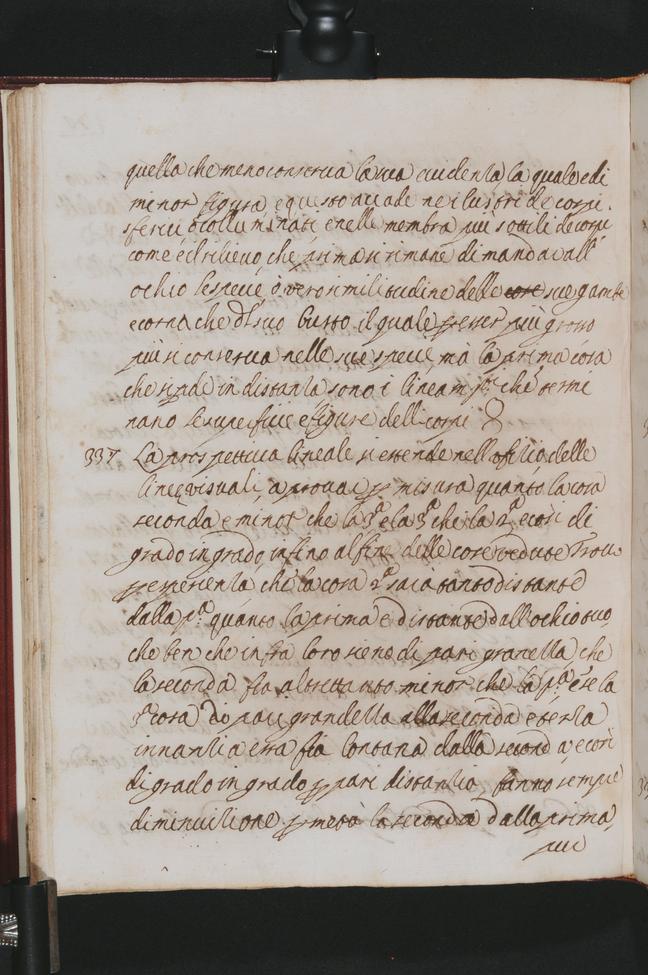 quella che meno conserua la sua euidentia la quale é di
minor figura e questo accade ne i lustri de corpi
sferici o collumnati e nelle membra più sottili de corpi
come é il rilieuo, che prima si rimane di mandar all'
ochio le specie, ò vero similitudine delle core sue gambe
e corna che del suo busto il quale per esser più grosso
più si conserua nelle sue specie, mà la prima cosa
che si perde in distantia sono i lineamenti che termi
nano le superficie e figure delli corpi
337 La prospettiua lineale si estende nell'ofitio delle
linee visuali, a prouar p misura quanto la cosa
seconda e minor che la pª e la 3ª che la 2ª e cosi di
grado in grado infino al fine delle cose vedute Trouo
p esperienza che la cosa 2ª sara tanto distante
dalla pª quanto la prima è distante dall'ochio tuo,
che ben che infra loro sieno di pari grandezza che
la seconda fia altrettanto minor che la pª e se la
3ª cosa di pari grandezza alla seconda é terza
innantia essa fia lontana dalla seconda e cosi
di grado in grado p pari distantia, fanno sempre
diminuitione p metà la seconda dalla prima,
pur